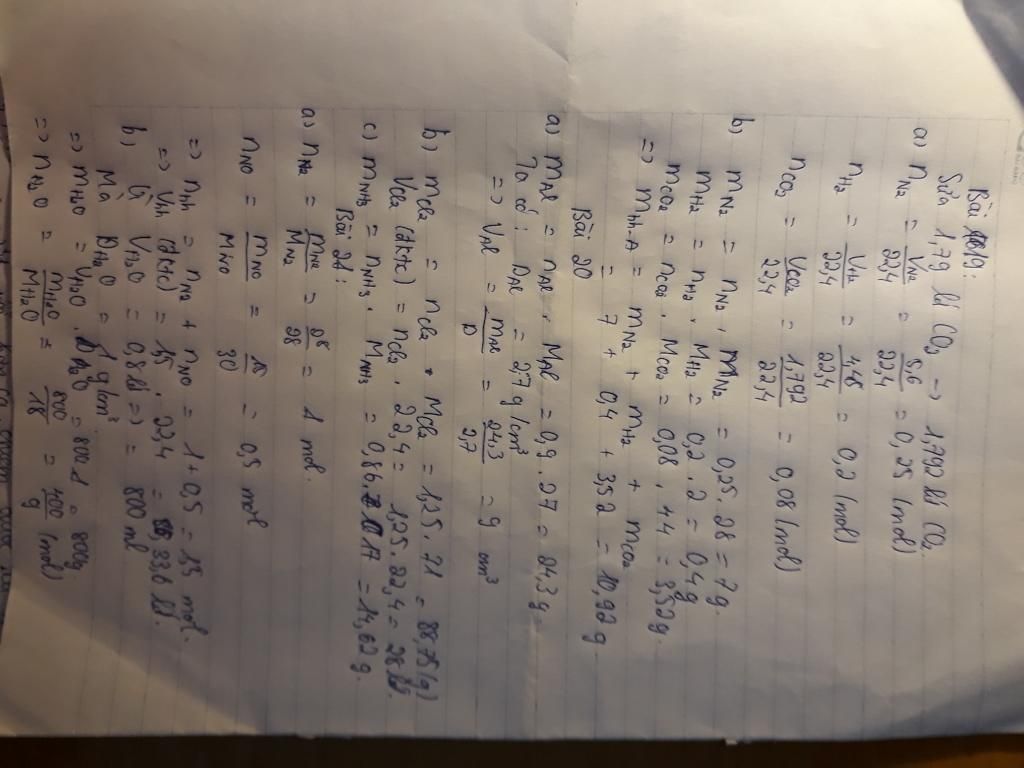 Bài 19:
Sửa 1,79 lít CO2 → 1,792 lít CO2.
a) nN2 = VN2/22,4 = 5,6/22,4 = 0,25 (mol)
nH2 = VH2/22,4 = 4,48/22,4 = 0,2 (mol)
nCO2 = VCO2/22,4 = 1,792/22,4 = 0,08 (mol)
b) mN2 = nN2 . MN2 = 0,25. 28 = 7g.
mH2 = nH2 . MH2 = 0,2 . 2 = 0,4g
mCO2 = nCO2 . MCO2 = 0,08 . 44 = 3,52g.
=> mhh A = mN2 + mH2 + mCO2
= 7 + 0,4 + 3,52 = 10,92 g
Bài 20
a) mAl = nAl . MAl = 0,9. 27 = 24,3 g.
Ta có: DAl = 2,7 g/cm3
=> VAl = mAl/D = 24,3/2,7 = 9 cm3
b) mCl2 = nCl2 . MCl2 = 1,25 . 71 = 88,75 (g)
VCl2 (đktc) = nCl2 . 22,4 = 1,25. 22,4 = 28 lít.
c) mNH3 = nNH3 . MNH3 = 0,86. 17 = 14,62 g.
Bài 21:
a) nN2 = mN2/MN2 = 28/28 = 1 mol.
nNO = mNO/MNO = 15/30 = 0,5 mol
=> nhh = nN2 + nNO = 1 + 0,5 = 1,5 mol.
=> Vhh (đktc) = 1,5 . 22,4 = 33,6 lít.
b) Vì VH2O = 0,8 lít = 800 ml
Mà DH2O = 1 g/cm3
=> mH2O = VH2O . DH2O = 800.1 = 800g
=> nH2O = mH2O/MH2O = 800/18 = 400/9 (mol)